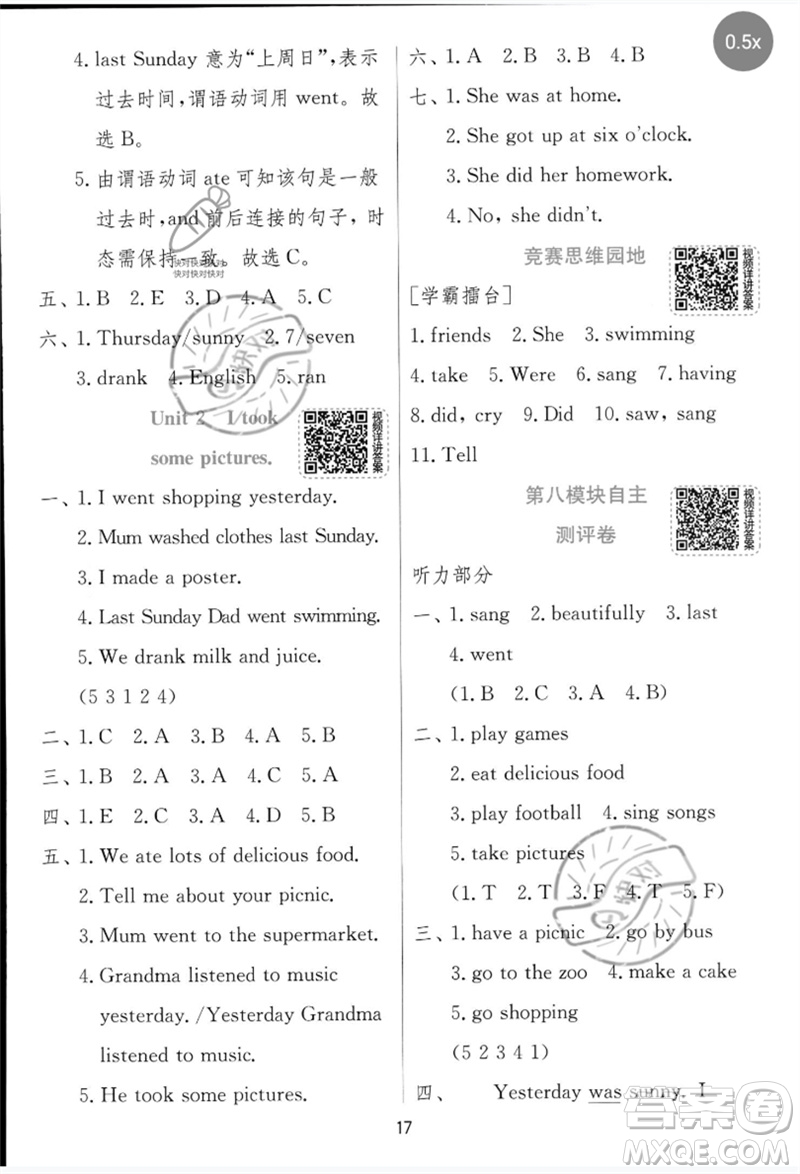 4. last Sunday 意为“上周日”,表示
过去时间,谓语动词用 went。故
选 B。
5. 由谓语动词 ate 可知该句是一般
过去时,and 前后连接的句子,时
态需保持一致。故选 C。
快对快对快对快对
快对快对快对
五、1. B 2. E 3. D 4. A 5. C
六、1. Thursday/sunny 2. 7/seven
3. drank 4. English 5. ran
Unit 2 I took
some pictures.
视频详讲答案
一、1. I went shopping yesterday.
2. Mum washed clothes last Sunday.
3. I made a poster.
4. Last Sunday Dad went swimming.
5. We drank milk and juice.
(5 3 1 2 4)
二、1. C 2. A 3. B 4. A 5. B
三、1. B 2. A 3. A 4. B 5. A
四、1. E 2. C 3. A 4. D 5. B
五、1. We ate lots of delicious food.
2. Tell me about your picnic.
3. Mum went to the supermarket.
4. Grandma listened to music
yesterday. /Yesterday Grandma
listened to music.
5. He took some pictures.
0.5x
六、1. A 2. B 3. B 4. B
七、1. She was at home.
2. She got up at six o'clock.
3. She did her homework.
4. No, she didn't.
竞赛思维园地
视频详讲答案
[学霸擂台]
1. friends 2. She 3. swimming
4. take 5. Were 6. sang 7. having
8. did, cry 9. Did 10. saw, sang
11. Tell
第八模块自主
测评卷
视频详讲答案
听力部分
一、1. sang 2. beautifully 3. last
4. went
(1. B 2. B 3. A 4. B)
二、1. play games
2. eat delicious food
3. play football 4. sing songs
5. take pictures
(1. T 2. T 3. F 4. T 5. F)
三、1. have a picnic 2. go by bus
3. go to the zoo 4. make a cake
5. go shopping
(5 2 3 4 1)
四、 Yesterday was sunny. I
17
答案卷
MXQE.COM